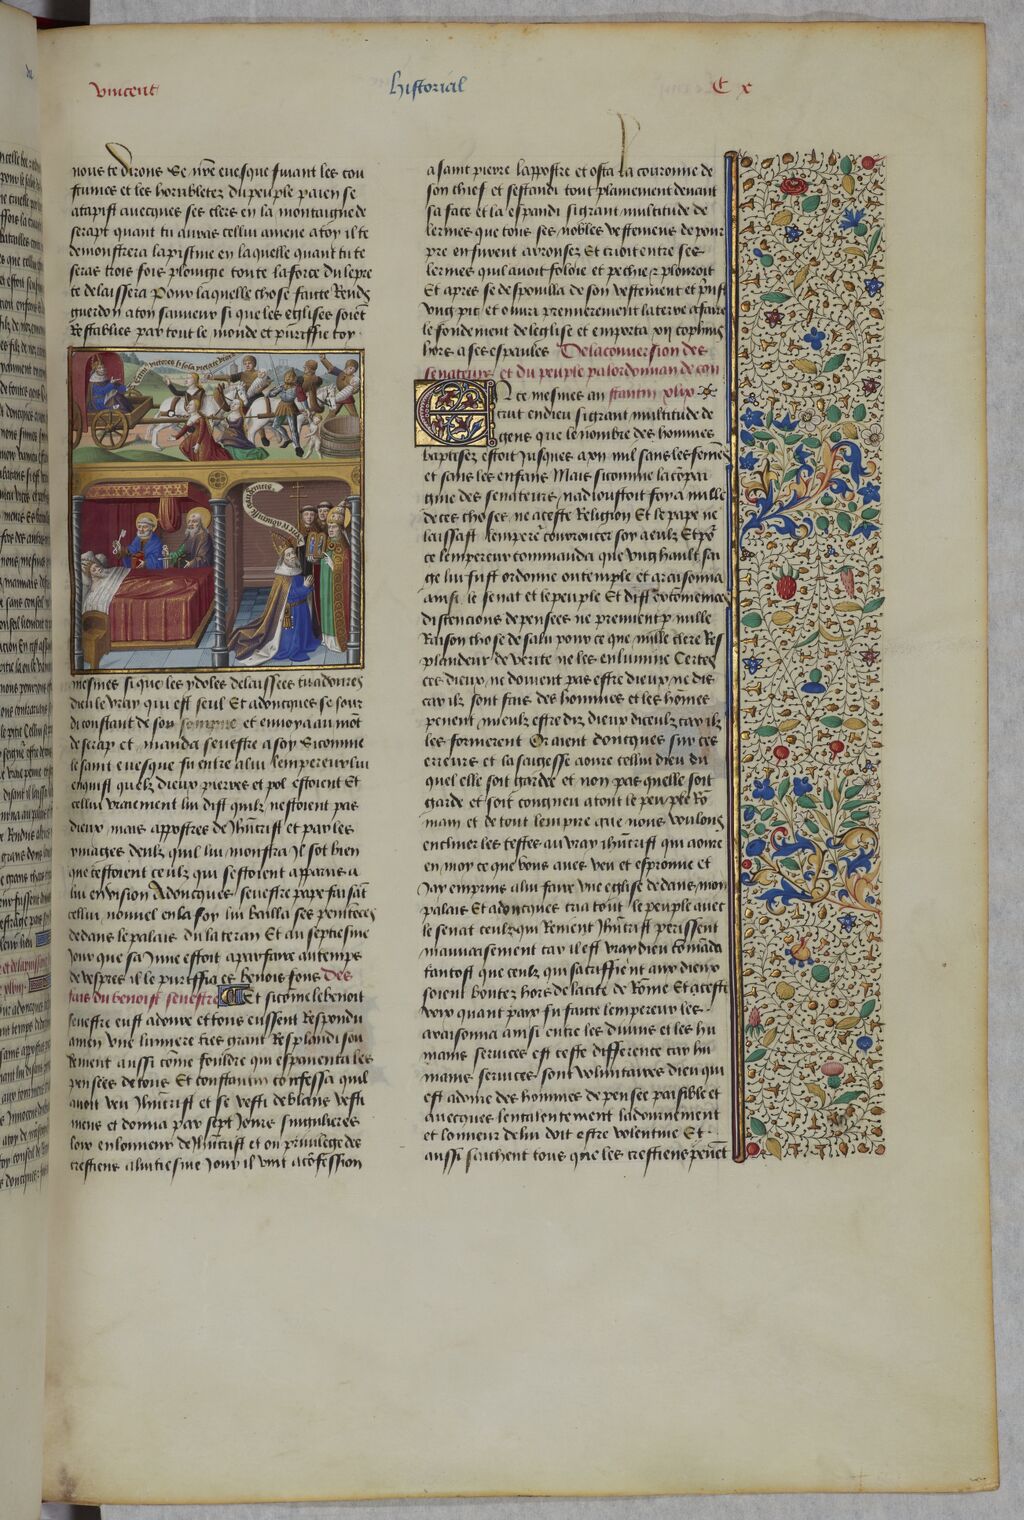 vincent
historial
C x
nous te dirons Se nre euesque suiuant les cou
stumes et les horribletez du peuple paien se
atapist auecques ses clers en la montaigne de
serapt quant tu auras cellui amene a toy il te
demonstrera la piscine en laquelle quant tu te
seras trois fois plongie toute la force du lepre
te delaissera Pour laquelle chose faicte Rendz
guerdon a ton sauueur si que les eglises soiet
Restablies par tout le monde et puriffie toy
mesmes si que les ydoles delaissees tu adores
dieu le vray qui est seul Et adoncques se sour
di constant de son sompne et enuoya au mot
de serap et manda seuestre a soy Sicomme
le saint euesque fu entre a lui lempereur lui
enquist quelz dieux pierres et pol estoient Et
cellui vraiement lui dist quilz nestoient pas
dieux mais appostres de Jhucrist et par les
ymages deulz quil lui monstra Il sot bien
que cestoient ceulz qui sestoient apparus a
lui en vision Adoncques seuestre pape faisat
cellui nouuel en la foy lui bailla ses peniteces
dedans le palais du lateran Et au septiesme
Jour que sa June estoit a parfaire au temps
de vespres il le puriffia es benois fons Des
fais du benoist seuestre Et sicome le benoit
seuestre eust adoure et tous eussent Respondu
amen vne lumiere tres grant Resplandi sou
dement aussi come fouldre qui espouenta les
pensees de tous Et constantin confessa quil
auoit veu Jhucrist et se vesti de blans veste
mens et donna par sept Jours singulieres
loix en lonneur de Jhucrist et ou priuilege des
crestiens a luitiesme Jour il vint a confession
a saint pierre lappostre et osta la couronne de
son chief et sestandi tout plainement deuant
sa face et la espandi si grant multitude de
lermes que tous ses nobles vestemens de pour
pre en furent arousez Et crioit entre ses
lermes quil auoit foloie et pechie et plouroit
Et apres se despouilla de son vestement et prist
vng pic et ouuri premierement la terre a faire
le fondement de leglise et emporta xii cophins
hors a ses espaules De la conuersion des
senateurs et du peuple par lordonnan de con
En ce mesmes an stantin xlix
crut en dieu si grant multitude de
gens que le nombre des hommes
baptisez estoit Jusques a xii mil sans les femes
et sans les enfans Mais sicomme la copai
gnie des senateurs nadioustoit foy a nulle
de ces choses ne a ceste Religion Et le pape ne
laissast lempere couroucer soy a eulz Et po
ce lempereur commanda que vng hault sie
ge lui fust ordonne ou temple et araisonna
ainsi le senat et le peuple Et dist
distencions de pensees ne prennent nulle
Raison chose de salu pour ce que nulle clere Res
plandeur de verite ne les enlumine Certes
ces dieux ne doiuent pas estre dieux ne dis
car ilz sont fais des hommes et les homes
peuent mieulz estre diz dieux diceulz car ilz
les formerent Or aient doncques fin ces
erreurs et la sagesse aoure cellui dieu du
quel elle soit gardee et non pas quelle soit
garde et soit congneu a tout le peuple Ro
main et de tout lempire que nous voulons
encliner les testes au vray Jhucrist qui aoure
en moy ce que vous aues veu et esprouue et
Jay emprins a lui faire vne eglise dedans mon
palais Et adoncques cria tout le peuple auec
le senat ceulz qui Renient Jhucrist perissent
mauuaisement car il est vray dieu comada
tantost que ceulz qui sacriffient aux dieux
soient boutez hors de la cite de Rome Et a ceste
voix quant paix fu faicte lempereur les
araisonna ainsi entre les diuins et les hu
mains seruices est ceste difference car hu
mains seruices sont voluntaires dieu qui
est adoure des hommes de pensee paisible et
auecques lentalentement ladournement
et lonneur de lui doit estre volentiue Et
aussi saichent tous que les crestiens peuet